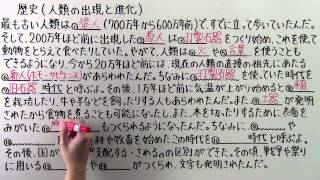 歴史(人類の出現と進化)
最も古い人類は①猿人(700万年から600万年前)で、すでに立って歩いていた。
そして、200万年ほど前に出現した②原人は③打製石器をつくり始め、これを使って
動物をとらえて食べたりしていた。やがて、人類は④火や⑤言葉を使うことも
できるようになり、今から20万年ほど前には、現在の人類の直接の祖先にあたる
⑥新人(ホモ・サピエンス)があらわれた。ちなみに、③を使っていた時代を
⑦旧石器時代と呼ぶよ。その後、1万年ほど前に気温が上がり始めると⑧
を栽培したり、牛や羊などを飼いしたりする人もあらわれた。また、⑨土器が発明
されたから食物を煮ることも可能になった。しかも、木を切りたおすために表面を
みがいた⑩ もつくられるようになったんだ。ちなみに⑨ や
耕や牧畜を始めたこの時代を⑪ 時代と呼ぶよ。
その後、国が 支配する・されるの区別ができた。その頃、戦争や祭り
に用いる がつくられ、文字も発明されたんだ。